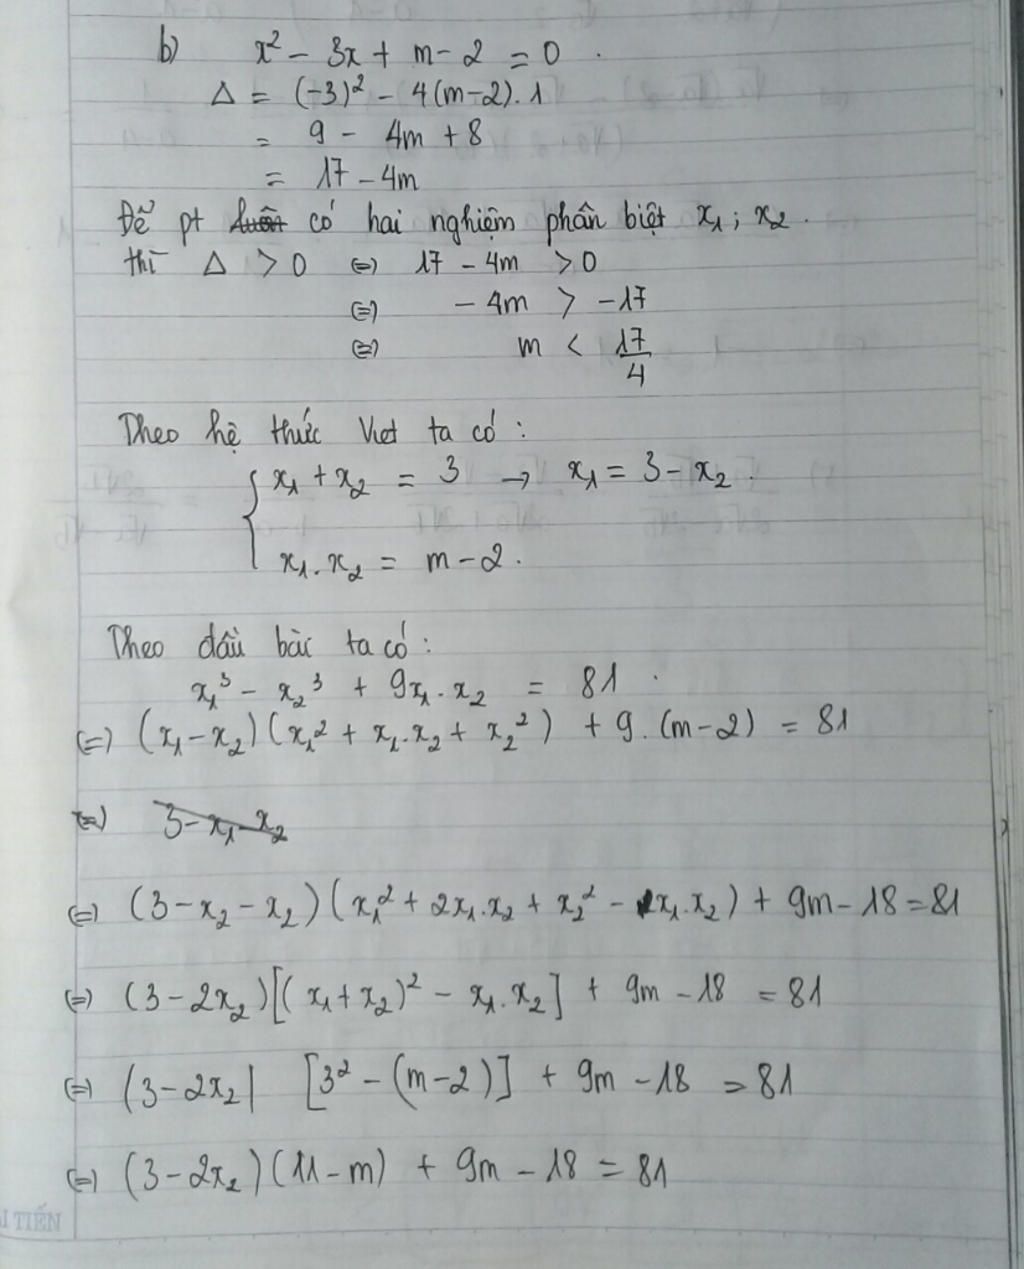 b) x² - 3x + m - 2 = 0 .
Δ = (-3)² - 4(m-2).1
= 9 - 4m + 8
= 17 - 4m
Để pt luôn có hai nghiệm phân biệt x₁; x₂ .
thì Δ > 0 (=) 17 - 4m > 0
(=) - 4m > -17
(=) m < 17/4
Theo hệ thức Viet ta có :
{ x₁ + x₂ = 3 → x₁ = 3 - x₂ .
x₁.x₂ = m - 2 .
Theo đầu bài ta có :
x₁³ - x₂³ + 9x₁.x₂ = 81 .
(=) (x₁ - x₂)(x₁² + x₁.x₂ + x₂²) + 9.(m-2) = 81
(=) 3 - x₁ - x₂
(=) (3 - x₂ - x₂)(x₁² + 2x₁.x₂ + x₂² - x₁.x₂) + 9m - 18 = 81
(=) (3 - 2x₂)[(x₁ + x₂)² - x₁.x₂] + 9m - 18 = 81
(=) (3 - 2x₂) [3² - (m-2)] + 9m - 18 = 81
(=) (3 - 2x₂)(11 - m) + 9m - 18 = 81
TIẾN